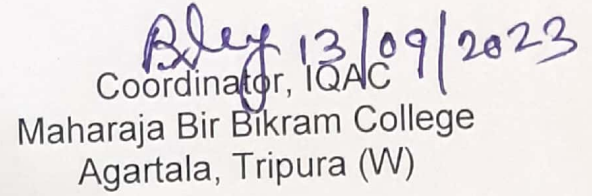 13/09/2023
Coordinator, IQAC
Maharaja Bir Bikram College
Agartala, Tripura (W)